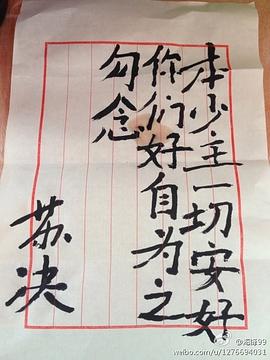 本少主一切安好
你们好自为之
勿念
苏决
weibo.com/u/1276694031